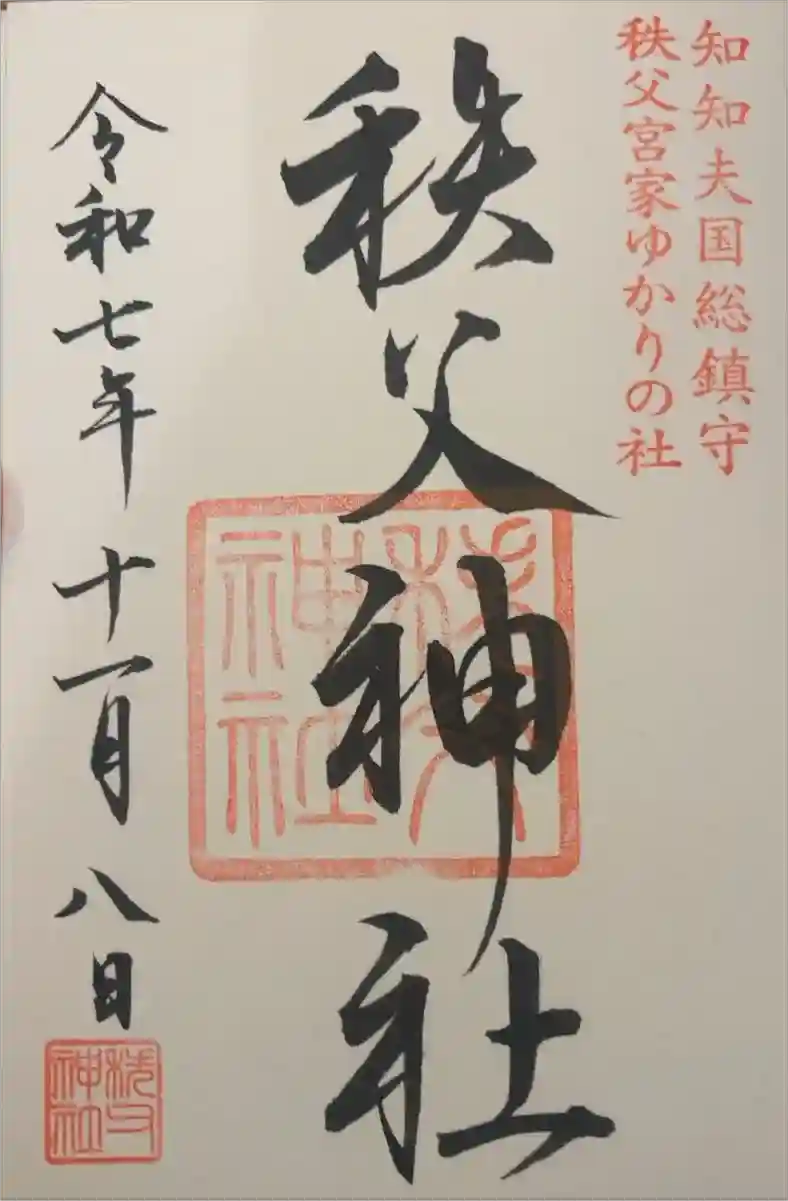 知知夫国総鎮守
秩父宮家ゆかりの社
秩父神社
秩父神社
令和七年十一月八日
秩父神社